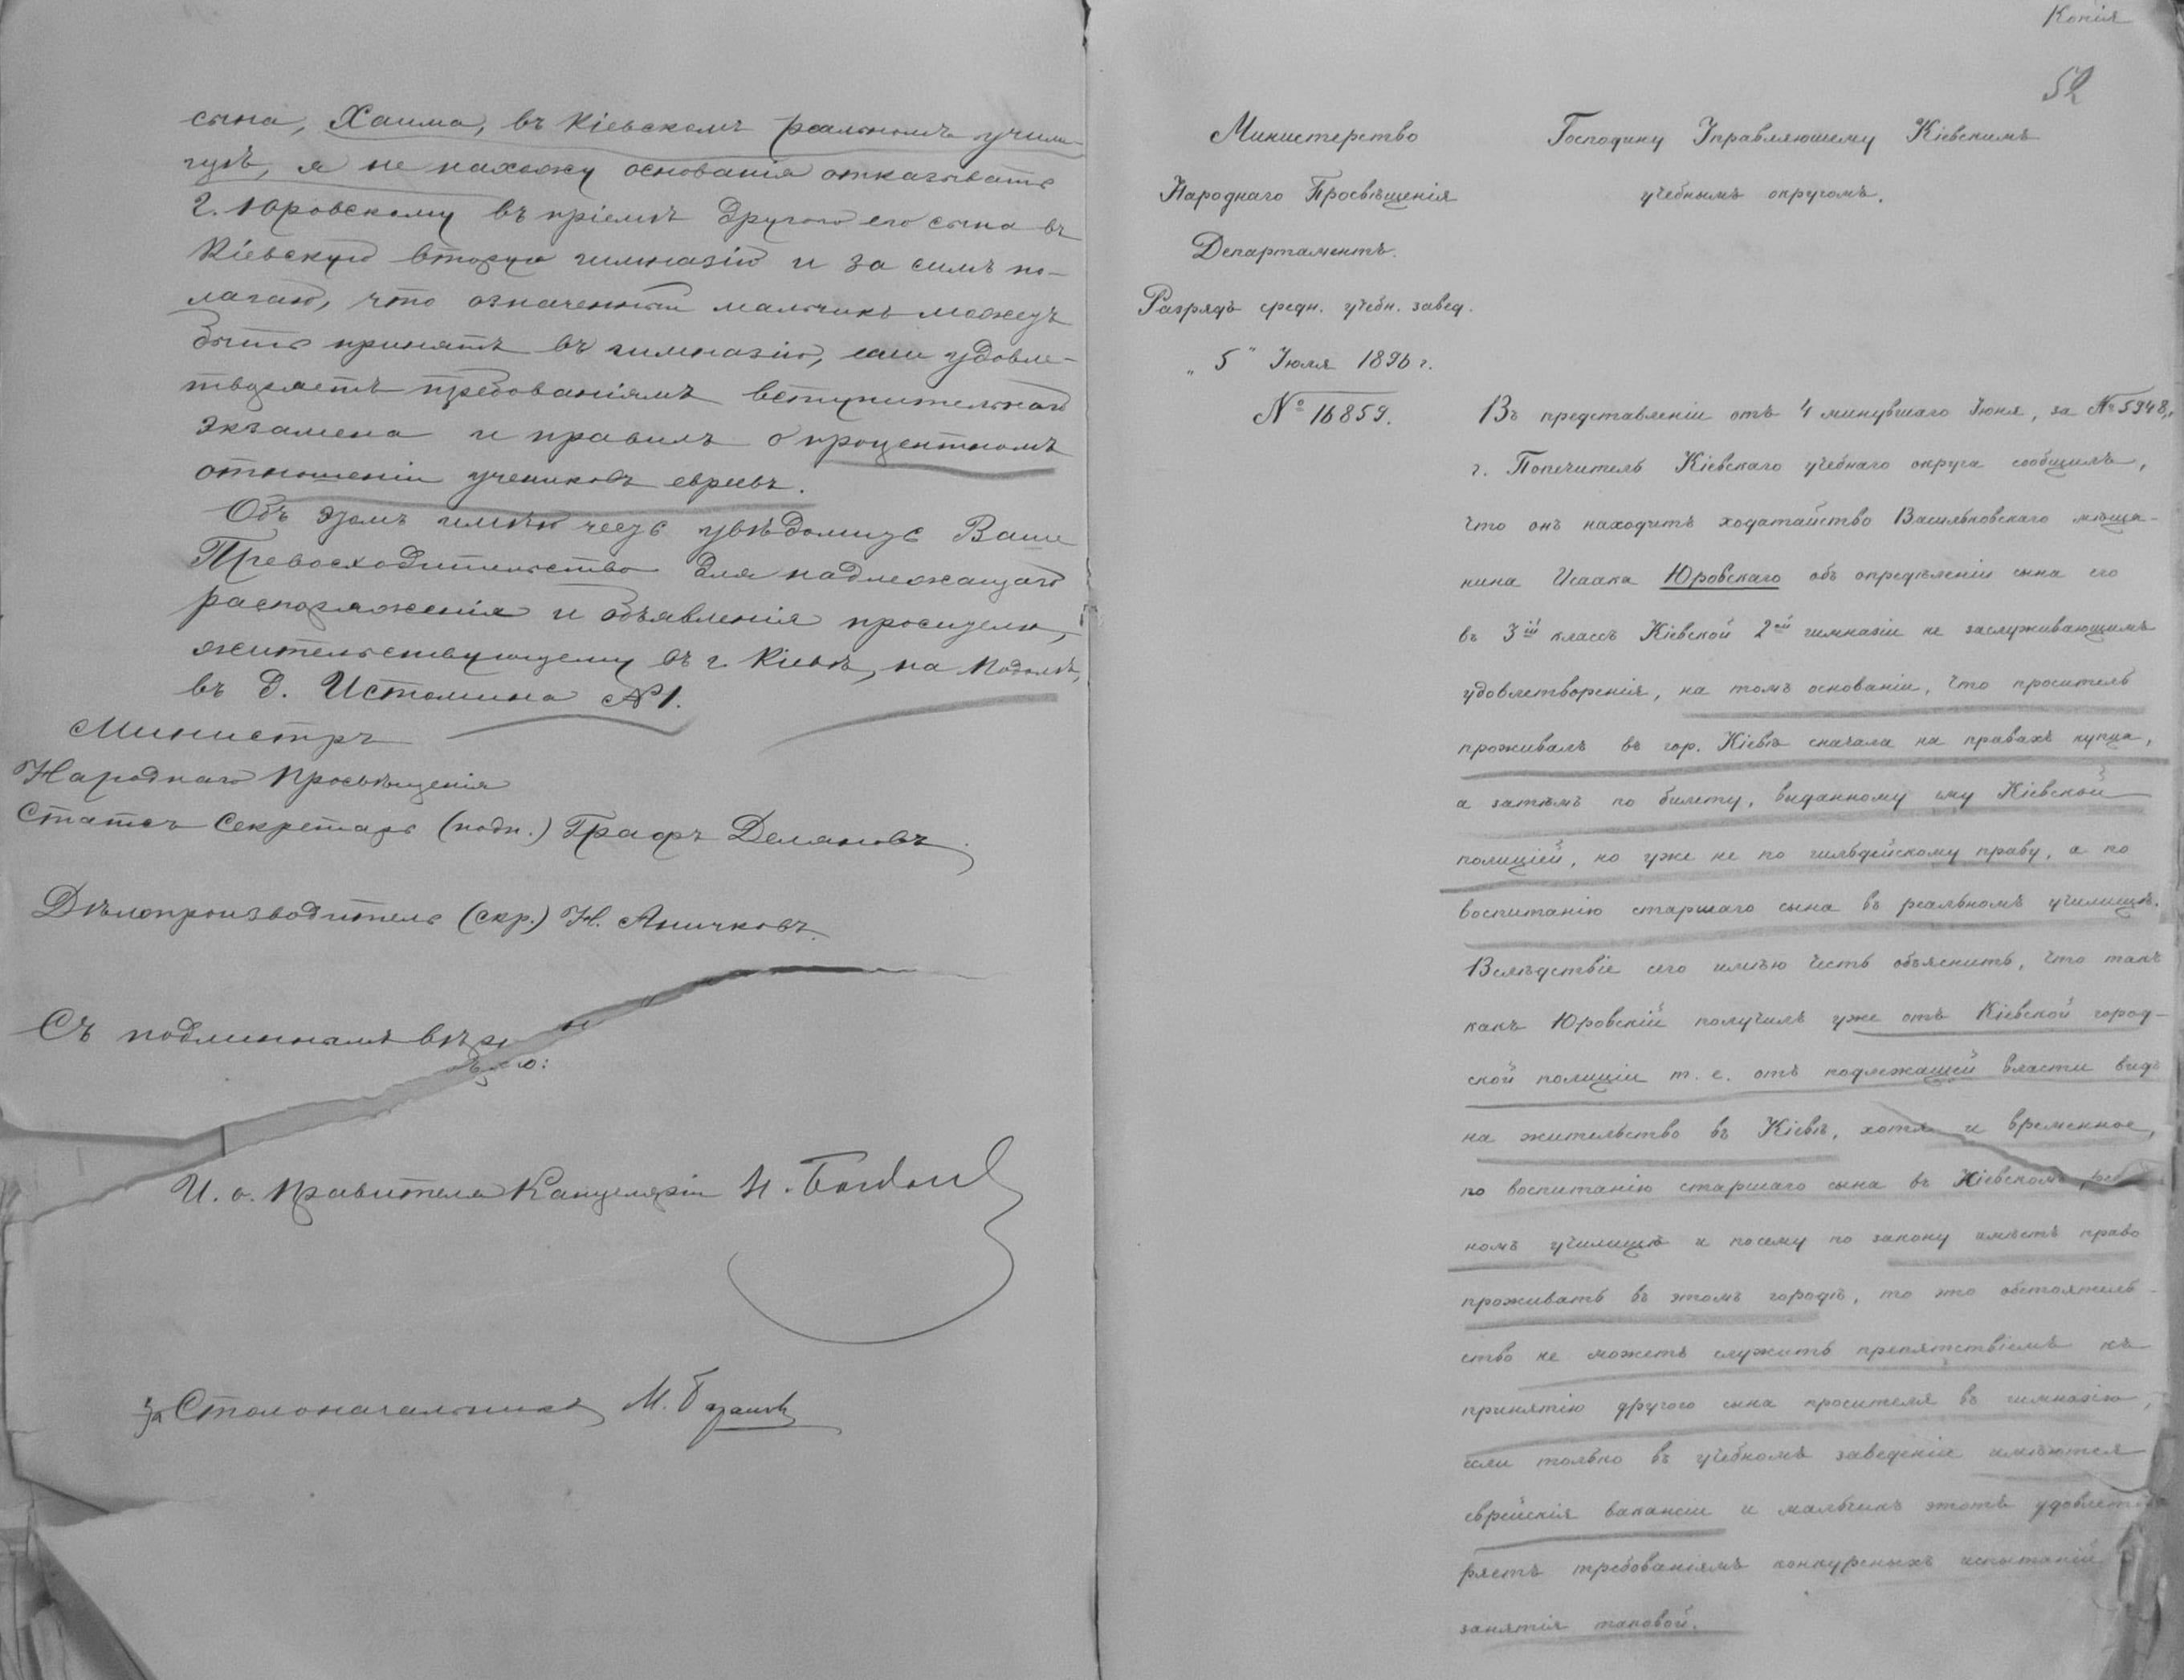 сына, Хаима, въ Кіевскомъ реальномъ учили-
щѣ, я не нахожу основанія отказывать
г. Юровскому въ пріемѣ другого его сына въ
Кіевскую вторую гимназію и за симъ по-
лагаю, что означенный мальчикъ можетъ
быть принятъ въ гимназію, если удовле-
творяетъ требованіямъ вступительнаго
экзамена и правилъ о процентномъ
отношеніи учениковъ евреевъ.
Объ этомъ имѣю честь увѣдомить Ваше
Превосходительство для надлежащаго
распоряженія и объявленія просителю,
жительствующему въ г. Кіевѣ, на Подолѣ,
въ д. Истомина № 1.
Министръ
Народнаго Просвѣщенія
Статсъ Секретарь (подп.) Графъ Деляновъ.
Дѣлопроизводитель (скр.) Н. Аничковъ.
Съ подлиннымъ
И. о. Правителя Канцеляріи
За Столоначальника М.
Копія
52
Министерство
Народнаго Просвѣщенія
Департаментъ.
Разрядъ средн. учебн. завед.
„5" Іюля 1896 г.
№ 16859.
Господину Управляющему Кіевскимъ
учебнымъ округомъ.
Въ представленіи отъ 4 минувшаго Іюня, за № 5948,
г. Попечитель Кіевскаго учебнаго округа сообщилъ,
что онъ находитъ ходатайство Васильковскаго мѣща-
нина Исаака Юровскаго объ опредѣленіи сына его
въ 3ій классъ Кіевской 2ой гимназіи не заслуживающимъ
удовлетворенія, на томъ основаніи, что проситель
проживалъ въ гор. Кіевѣ сначала на правахъ купца,
а затѣмъ по билету, выданному ему Кіевской
полиціей, но уже не по гильдейскому праву, а по
воспитанію старшаго сына въ реальномъ училищѣ.
Вслѣдствіе сего имѣю честь объяснить, что такъ
какъ Юровскій получилъ уже отъ Кіевской город-
ской полиціи т. е. отъ подлежащей власти видъ
на жительство въ Кіевѣ, хотя и временное,
по воспитанію старшаго сына въ Кіевскомъ
номъ училищѣ и посему по закону имѣетъ право
проживать въ этомъ городѣ, то это обстоятель-
ство не можетъ служить препятствіемъ къ
принятію другого сына просителя въ гимназію,
если только въ учебномъ заведеніи имѣются
еврейскія вакансіи и мальчикъ этотъ удовлетво
ряетъ требованіямъ конкурсныхъ испытаній
занятія таковой.